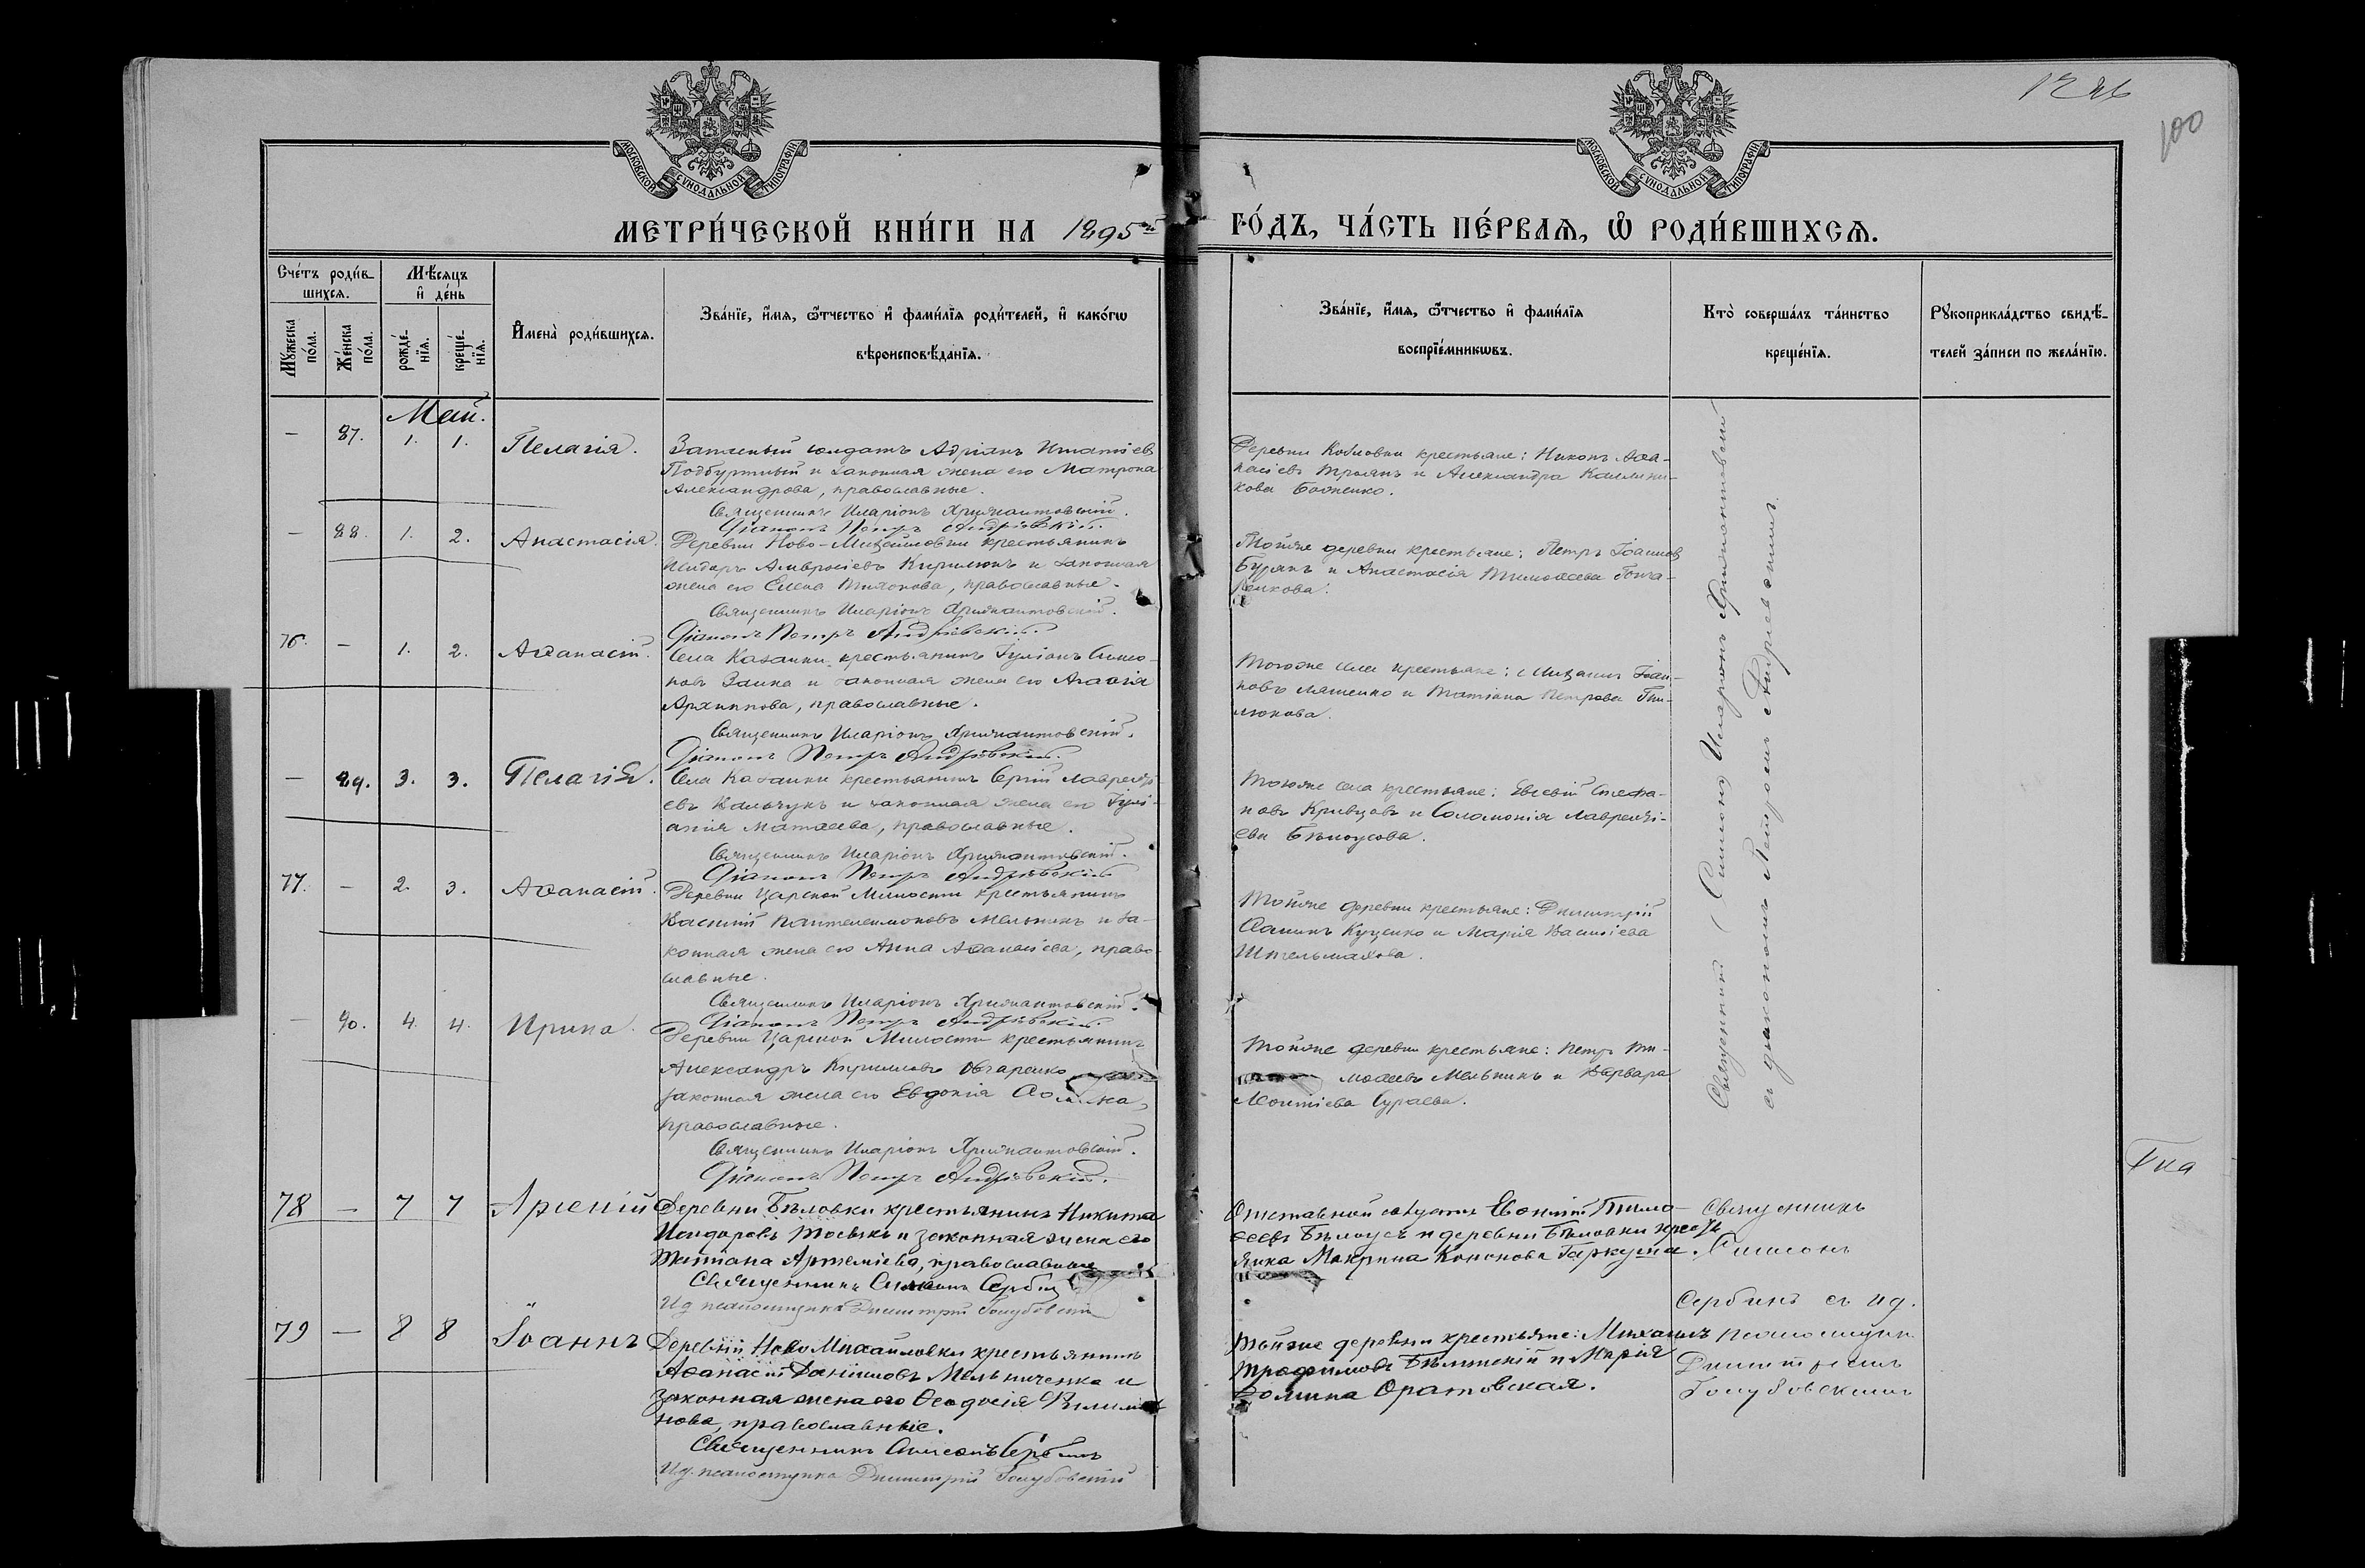 1246
100
МОСКОВСКОЙ СѴНОДАЛЬНОЙ ТИПОГРАФІИ
МОСКОВСКОЙ СѴНОДАЛЬНОЙ ТИПОГРАФІИ
МЕТРИ́ЧЕСКОЙ КНИ́ГИ НА 1895й ГО́ДЪ, ЧА́СТЬ ПЕ́РВАѦ, Ѡ РОДИ́ВШИХСѦ.
Сче́тъ роди́в-
шихсѧ.
Мѣ́сѧцъ
и҆ де́нь
Мꙋ́жеска
по́ла.
Же́нска
по́ла.
рожде́-
нїѧ.
креще́-
нїѧ.
И҆мена̀ роди́вшихсѧ.
Зва́нїе, и҆́мѧ, ѻ҆́тчество и҆ фами́лїѧ роди́телей, и҆ како́гѡ
вѣроисповѣ́данїѧ.
Зва́нїе, и҆́мѧ, ѻ҆́тчество и҆ фами́лїѧ
воспрїе́мникѡвъ.
Кто̀ соверша́лъ та́инство
креще́нїѧ.
Рꙋкоприкла́дство свидѣ́-
телей за́писи по жела́нїю.
Май.
— 87. 1. 1. Пелагія.
Запасный солдатъ Адріанъ Игнатіевъ
Подбуртный и законная жена его Матрона
Александрова, православные.
Священникъ Иларіонъ Хрисантовскій.
Діаконъ Петръ Андріевскій.
Деревни Кобловки крестьяне: Никонъ Аѳа-
насіевъ Троянъ и Александра Каллини-
кова Боженко.
— 88. 1. 2. Анастасія.
Деревни Ново-Михайловки крестьянинъ
Исидоръ Амвросіевъ Кирилюкъ и законная
жена его Елена Тихонова, православные.
Священникъ Иларіонъ Хрисантовскій.
Діаконъ Петръ Андріевскій.
Тойже деревни крестьяне: Петръ Іоанновъ
Бурянъ и Анастасія Тимоѳеева Гонча-
ренкова.
76. — 1. 2. Аѳанасій.
Села Казанки крестьянинъ Іуліанъ Симо-
новъ Заика и законная жена его Агаѳія
Архиппова, православные.
Священникъ Иларіонъ Хрисантовскій.
Діаконъ Петръ Андріевскій.
Тогоже села крестьяне: Михаилъ Іоан-
новъ Ляшенко и Татіана Петрова
— 89. 3. 3. Пелагія.
Села Казанки крестьянинъ Сергій Лавренті-
евъ Кальчукъ и законная жена его Іулі-
анія Матѳеева, православные.
Священникъ Иларіонъ Хрисантовскій.
Діаконъ Петръ Андріевскій.
Тогоже села крестьяне: Евсевій Стефа-
новъ Кривцовъ и Соломонія Лавренті-
ева Бѣлоусова.
77. — 2. 3. Аѳанасій.
Деревни Царской Милости крестьянинъ
Василій Пантелеимоновъ Мельникъ и за-
конная жена его Анна Аѳанасіева, право-
славные.
Священникъ Иларіонъ Хрисантовскій.
Діаконъ Петръ Андріевскій.
Тойже деревни крестьяне: Димитрій
Куценко и Марія Василіева
Штельмахова.
— 90. 4. 4. Ирина.
Деревни Царской Милости крестьянинъ
Александръ Кирилловъ Овчаренко
законная жена его Евдокія
православные.
Священникъ Иларіонъ Хрисантовскій.
Діаконъ Петръ Андріевскій.
Тойже деревни крестьяне: Петръ Ти-
моѳеевъ Мельникъ и Варвара
Леонтіева Сураева.
Священникъ Симеонъ Иларіонъ Хрисантовскій
съ діакономъ Петромъ Андріевскимъ.
78 — 7 7 Арсеній
Деревни Бѣловки крестьянинъ Никита
Исидоровъ и законная жена его
Татіана Артеміева, православные
Священникъ Симеонъ Сербинъ
И д псаломщика Димитрій Голубовскій
Отставной Евѳимій Тимо-
ѳеевъ Бѣлоусъ и деревни Бѣловки кресть
янка Макрина Кононова Гаркуша.
Священникъ
Симеонъ
Сербинъ съ и д.
псаломщика
Димитріемъ
Голубовскимъ
79 — 8 8 Іоаннъ
Деревни Ново Михайловки крестьянинъ
Аѳанасій Данииловъ Мельниченко и
законная жена его Ѳеодосія Филимо
нова, православные.
Священникъ Симеонъ Сербинъ
И д. псаломщика Димитрій Голубовскій
Тойже деревни крестьяне: Михаилъ
Трофимовъ Бѣлинскій и Марія
Ѳомина Оратовская.